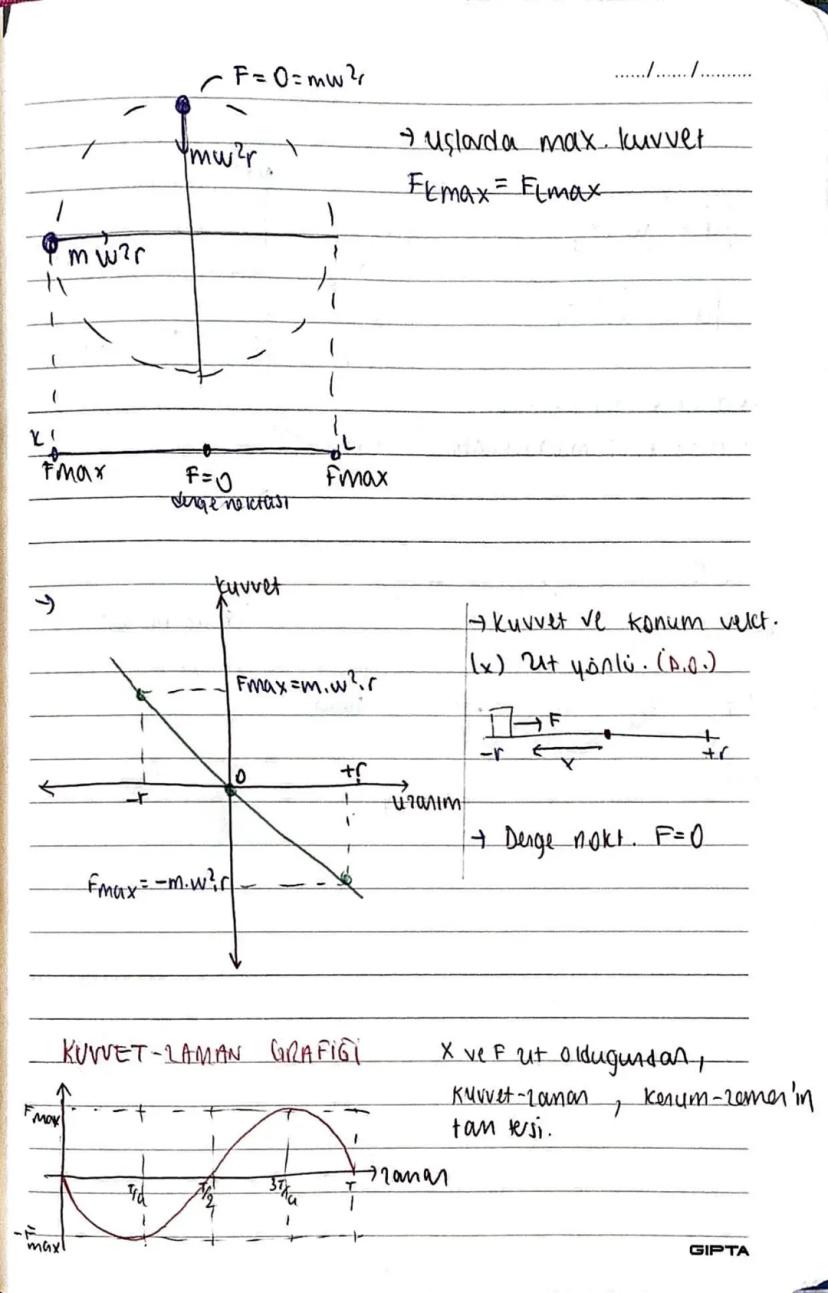 ....../....../..........
F = 0 = mw²r
mw²r
→ uçlarda max. kuvvet
FKmax = FLmax
mw²r
K
L
Fmax
F=0
Fmax
denge noktası
→
kuvvet
Fmax = m.w².r
-r
0
+r
uzanım
Fmax = -m.w².r
→ Kuvvet ve konum vekt.
(x) zıt yönlü. (D.O.)
→ F
-r
x
+r
→ Denge nokt. F=0
KUVVET-ZAMAN GRAFİĞİ
Fmax
T/4
T/2
3T/4
T
zaman
-Fmax
X ve F zıt olduğundan,
kuvvet-zaman, konum-zaman'ın
tam tersi.
GIPTA